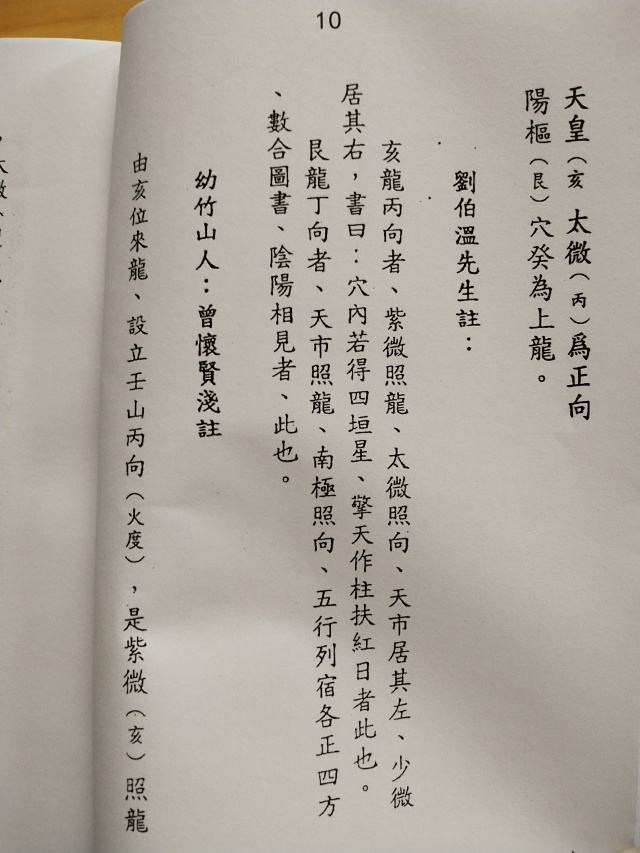 10
天皇（亥 太微（丙）爲正向
陽樞（艮）穴癸為上龍。
劉伯溫先生註：
亥龍丙向者、紫微照龍、太微照向、天市居其左、少微
居其右，書曰：穴內若得四垣星、擎天作柱扶紅日者此也。
艮龍丁向者、天市照龍、南極照向、五行列宿各正四方
、數合圖書、陰陽相見者、此也。
幼竹山人：曾懷賢淺註
由亥位來龍、設立壬山丙向（火度），是紫微（亥）照龍